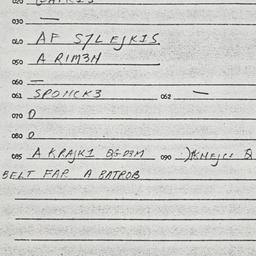 030 —
040 AF S7L EJKIS
050 A RIM3N
060 —
061 SPONCK3 062 —
070 0
080 0
085 A KRAJKI 090
BELT FAR A BATROB